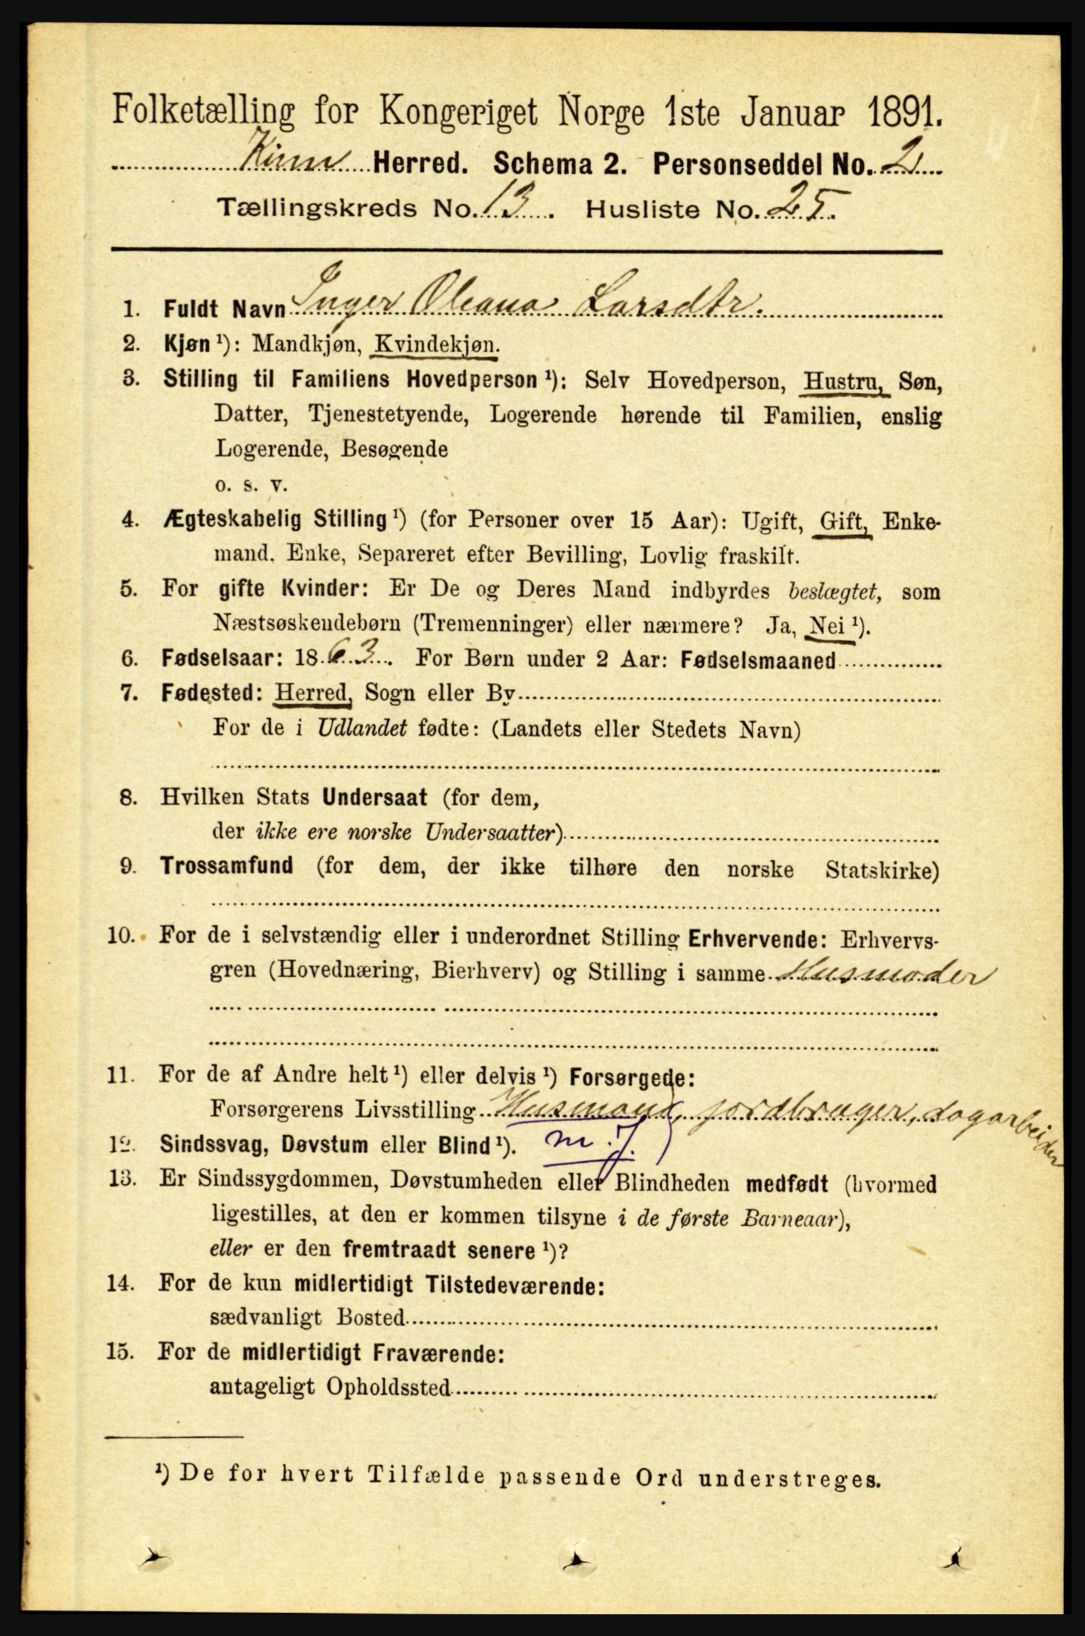 Folketælling for Kongeriget Norge 1ste Januar 1891.
Kinn Herred. Schema 2. Personseddel No. 2
Tællingskreds No. 13. Husliste No. 25.
1. Fuldt Navn Inger Oleana Larsdtr.
2. Kjøn ¹): Mandkjøn, Kvindekjøn.
3. Stilling til Familiens Hovedperson ¹): Selv Hovedperson, Hustru, Søn,
Datter, Tjenestetyende, Logerende hørende til Familien, enslig
Logerende, Besøgende
o. s. v.
4. Ægteskabelig Stilling ¹) (for Personer over 15 Aar): Ugift, Gift, Enke-
mand, Enke, Separeret efter Bevilling, Lovlig fraskilt.
5. For gifte Kvinder: Er De og Deres Mand indbyrdes beslægtet, som
Næstsøskendebørn (Tremenninger) eller nærmere? Ja, Nei ¹).
6. Fødselsaar: 1863. For Børn under 2 Aar: Fødselsmaaned
7. Fødested: Herred, Sogn eller By
For de i Udlandet fødte: (Landets eller Stedets Navn)
8. Hvilken Stats Undersaat (for dem,
der ikke ere norske Undersaatter)
9. Trossamfund (for dem, der ikke tilhøre den norske Statskirke)
10. For de i selvstændig eller i underordnet Stilling Erhvervende: Erhvervs-
gren (Hovednæring, Bierhverv) og Stilling i samme Husmoder
11. For de af Andre helt ¹) eller delvis ¹) Forsørgede:
Forsørgerens Livsstilling Husmand, jordbruger, dagarbeider
12. Sindssvag, Døvstum eller Blind ¹). m. J.)
13. Er Sindssygdommen, Døvstumheden eller Blindheden medfødt (hvormed
ligestilles, at den er kommen tilsyne i de første Barneaar),
eller er den fremtraadt senere ¹)?
14. For de kun midlertidigt Tilstedeværende:
sædvanligt Bosted
15. For de midlertidigt Fraværende:
antageligt Opholdssted
¹) De for hvert Tilfælde passende Ord understreges.